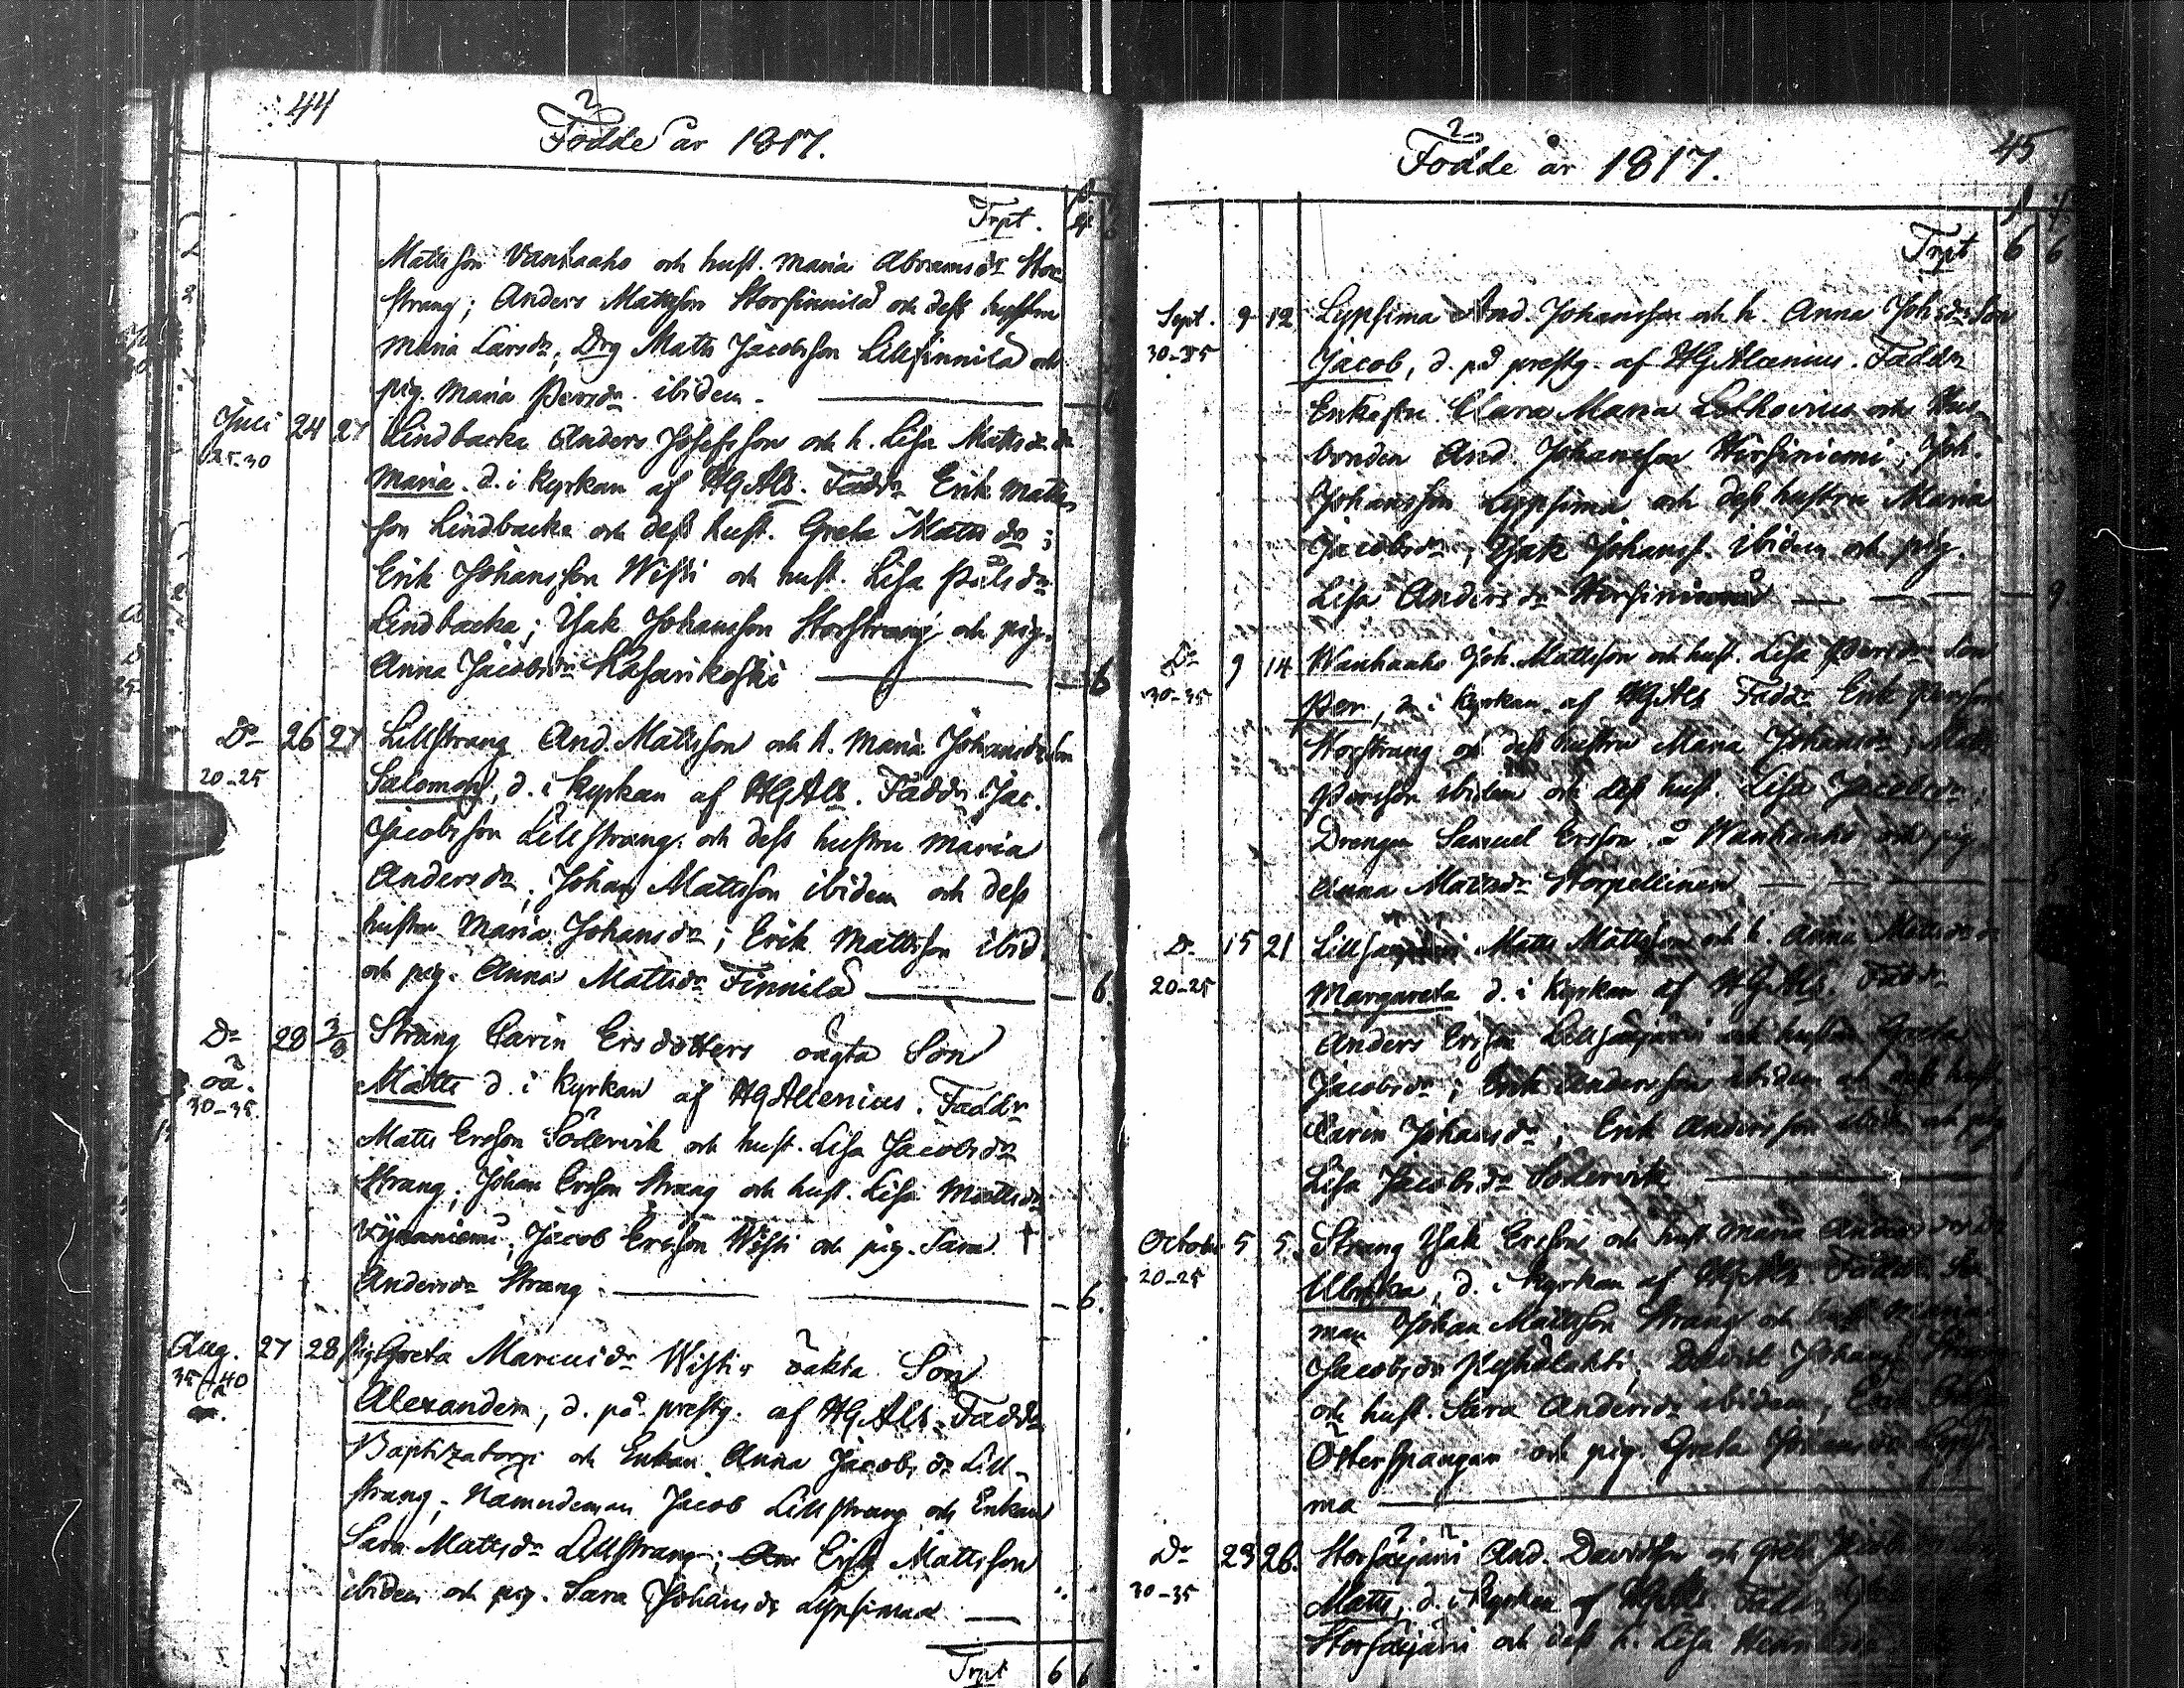 44
Födde år 1817.
Trpt. 4
Mattsson Vanhaaho och hust. Maria Abramsdr Stor
strang; Anders Mattsson Storfinnilä och dess hustru
Maria Larsdr; Drg Matts Jacobsson Lillfinnilä och
pig. Maria Persdr ibidem.
Juli 24 27 Lindbacka Anders Josefsson och h. Lisa Mattsdr dr
25-30 Maria. d. i kyrkan af HGAls. Faddr Erik Matts
son Lindbacka och dess hust. Greta Mattsdr;
Erik Johansson Wisti och hust. Lisa Pålsdr
Lindbacka; Isak Johansson Storstrang och pig.
Anna Jacobsdr Kasarikoski — 6
Do 26 27 Lillstrang And. Mattsson och h. Maria Johansdr Son
20-25 Salomon, d. i kyrkan af HGAls. Faddr Jac.
Jacobsson Lillstrang och dess hustru Maria
Andersdr; Johan Mattsson ibidem och dess
hustru Maria Johansdr; Erik Mattsson ibid.
och pig. Anna Mattsdr Finnilä — 6.
Do 28 3/8 Strang Carin Ersdotters oägta Son
oä. Matts d. i kyrkan af HGAlcenius. Faddr
30-35. Matts Ersson Södervik och hust. Lisa Jacobsdr
Strang; Johan Ersson Strang och hust. Lisa Mattsdr
; Jacob Ersson Wisti och pig. Sara †
Andersdr Strang — 6.
Aug. 27 28 Pig Greta Marcusdr Wisti oäkta Son
35-40 Alexander, d. på prestg. af HGAls. Faddr
oä. Baptizator och Enkan Anna Jacobsdr Lill-
strang; Nämndeman Jacob Lillstrang och Enkan
Sara Mattsdr Lillstrang; Erik Mattsson
ibidem och pig. Sara Johansdr Lypsimaa —
Trpt 6 6
45
Födde år 1817.
Trpt 6 6
Sept. 9 12 Lypsima And. Johansson och h. Anna Johsdr Son
30-35 Jacob, d. på prestg. af HGAlcenius. Faddr
Enkefru Clara Maria Lithovius och Hus-
bonden And. Johansson Hirsiniemi; Joh.
Johansson Lypsima och dess hustru Maria
Jacobsdr; Isak Johanss. ibidem och pig.
Lisa Andersdr — 9.
Do 9 14 Wanhaaho Joh. Mattsson och hust. Lisa Persdr Son
30-35 Per, d. i kyrkan af HGAls. Faddr Erik Persson
Storstrang och dess hustru Maria Johansdr; Matts
Persson ibidem och dess hust. Lisa Jacobsdr;
Drengen Samuel Ersson å Wanhaaho och pig.
Anna Mattsdr Storpellinen —
Do 15 21 Matts Mattsson och h. Anna Mattsdr dr
20-25 Margareta d. i kyrkan af HGAls. Faddr
Anders Ersson Lillsääjärvi och hustru Greta
Jacobsdr; Erik Andersson ibidem och dess hust.
Carin Johansdr; Erik Andersson ibidem och pig.
Lisa Jacobsdr Södervik —
October 5 5. Strang Isak Ersson och hust. Maria Andersdr dr
20-25 Ulrika, d. i kyrkan af HGAls. Faddr
man Johan Mattsson Strang och hust Maria
Jacobsdr; David Johanss. Strang
och hust. Sara Andersdr ibidem; Erik Ersson
Österspangar och pig. Greta Johansdr Lypsi-
ma —
Do 23 26. Storsääjärvi And. Davidsson och Greta
30-35 Matts, d. i kyrkan af HGAls. Faddr
Storsääjärvi och dess h. Lisa Henriksdr